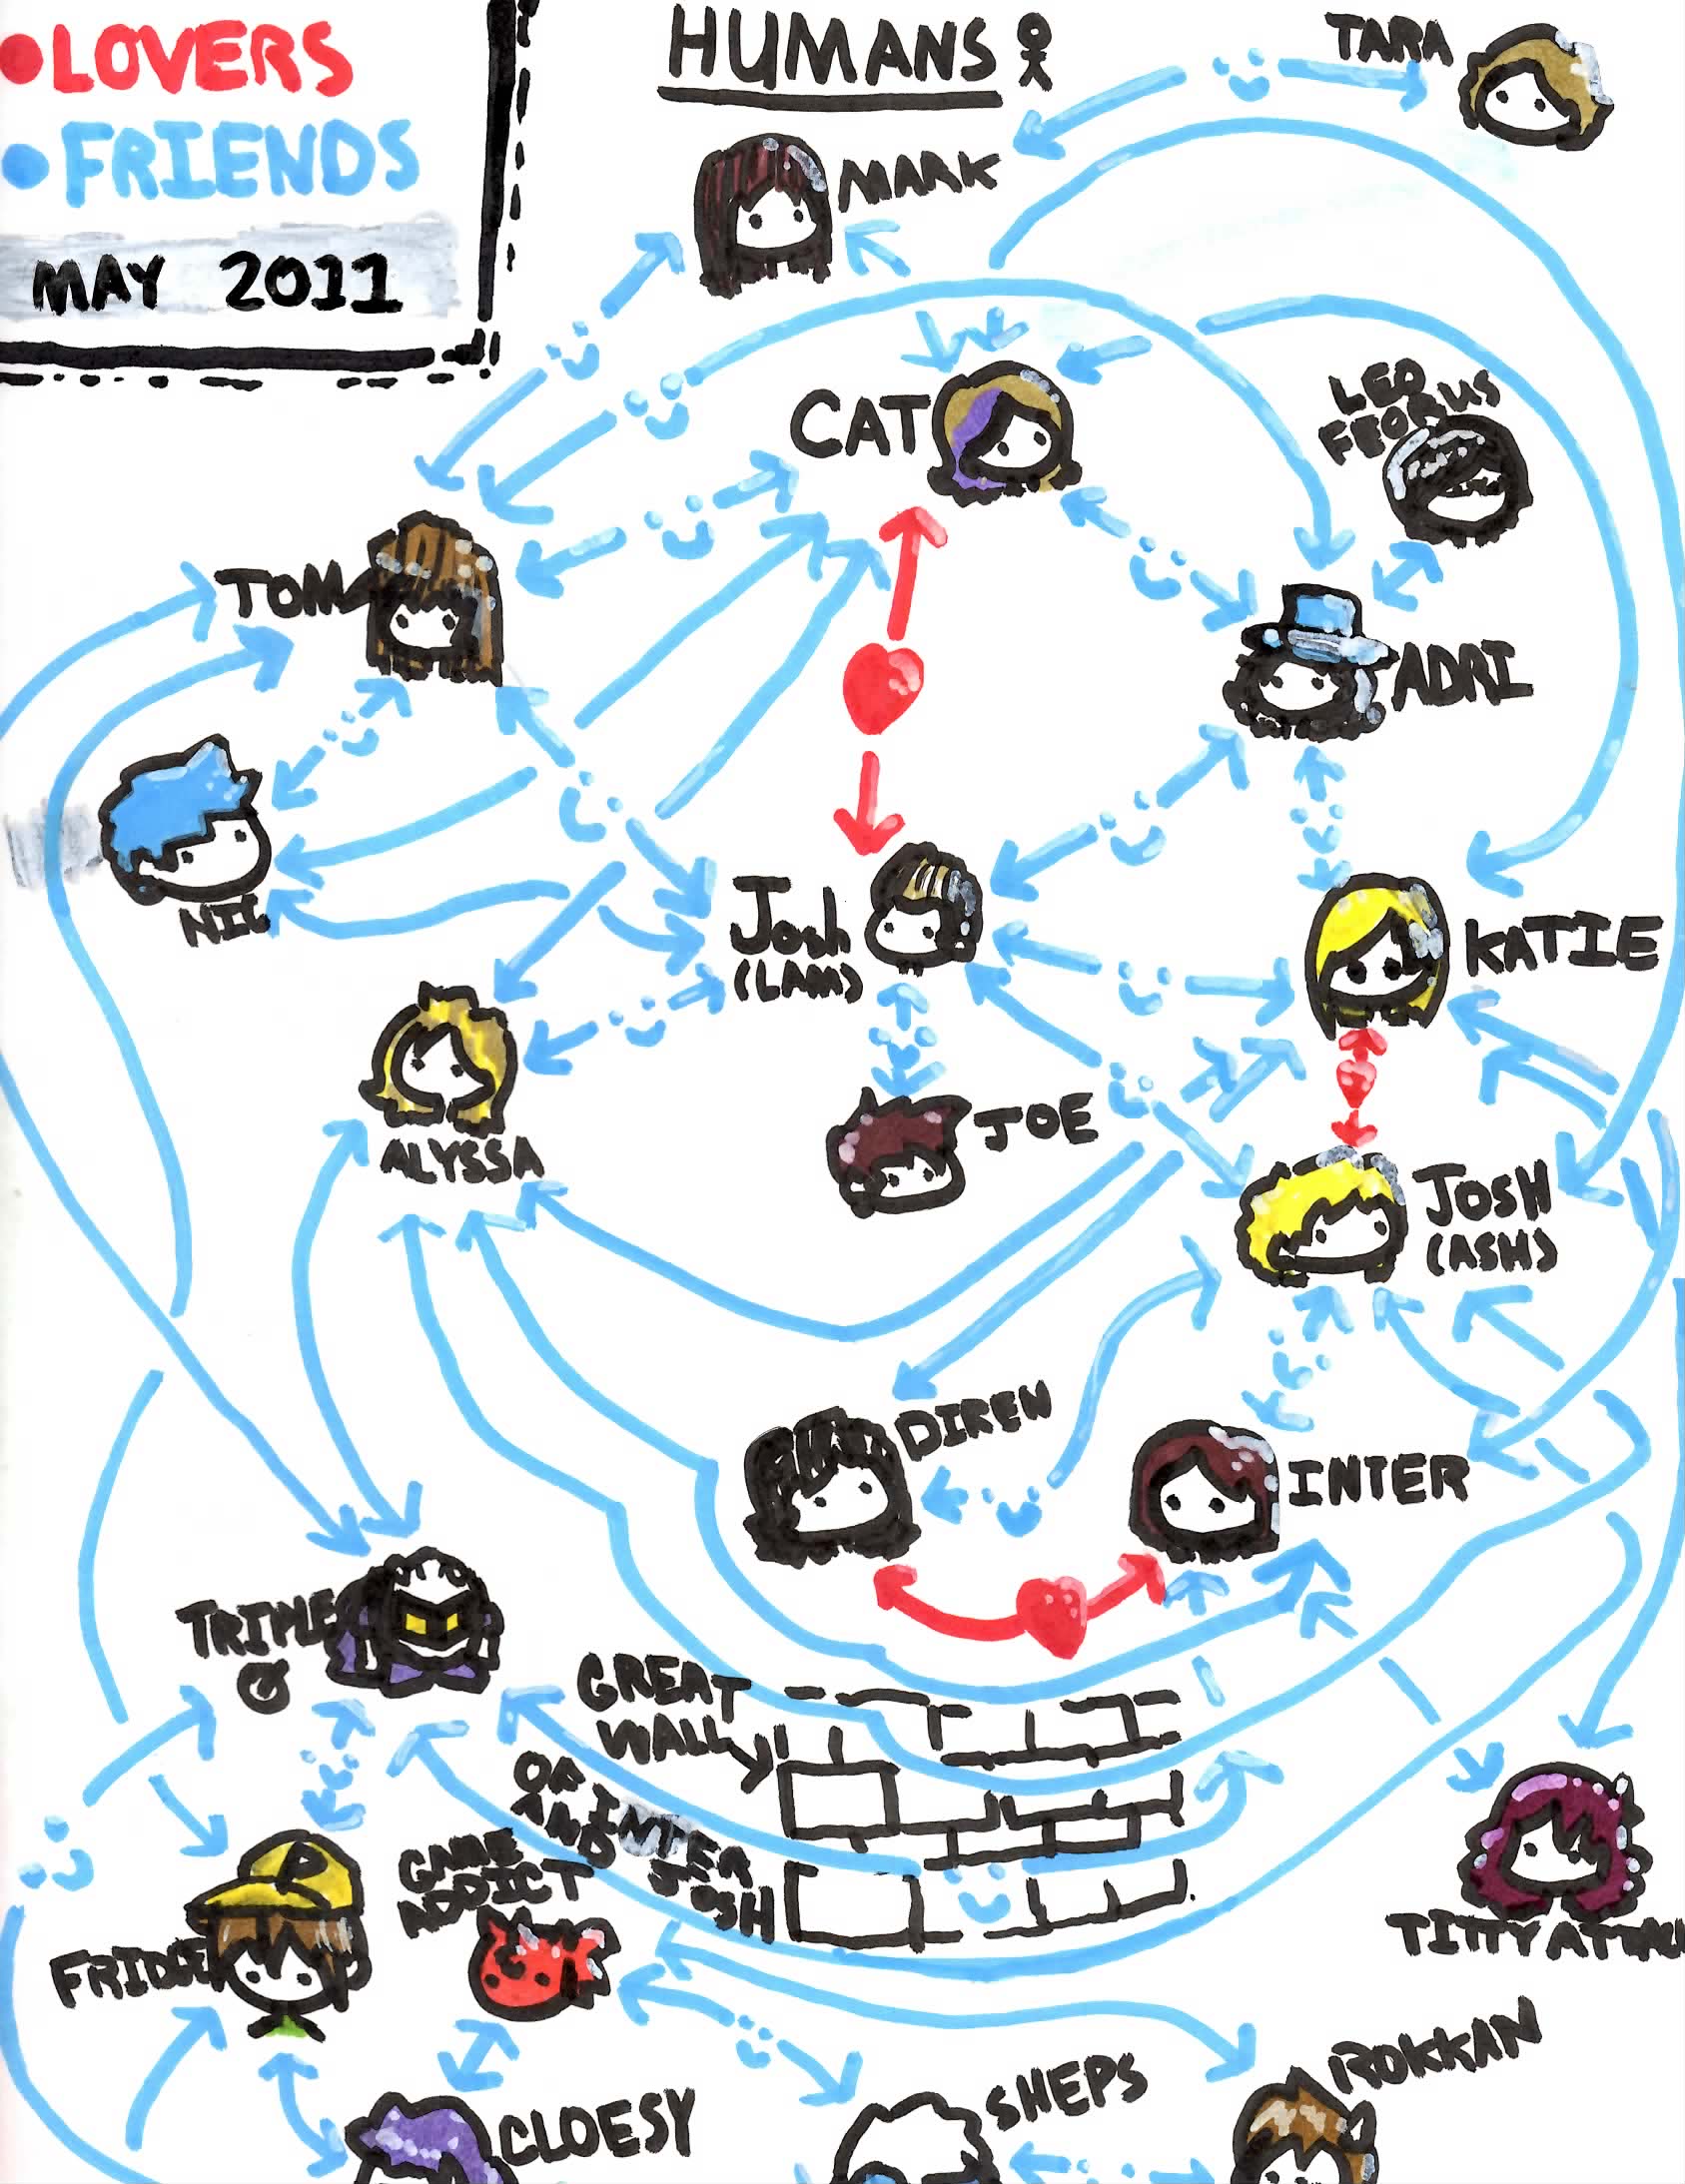 LOVERS
FRIENDS
MAY 2011
HUMANS
TARA
MARK
CAT
LEO
TOM
ADRI
NIC
Josh
(LAM)
KATIE
ALYSSA
JOE
JOSH
(ASH)
DIREN
INTER
TRIPLE
GREAT
WALL
OF INTER
AND JOSH
GAME
ADDICT
P
FRIDGE
TITTY ATTACK
CLOESY
SHEPS
ROKKAN